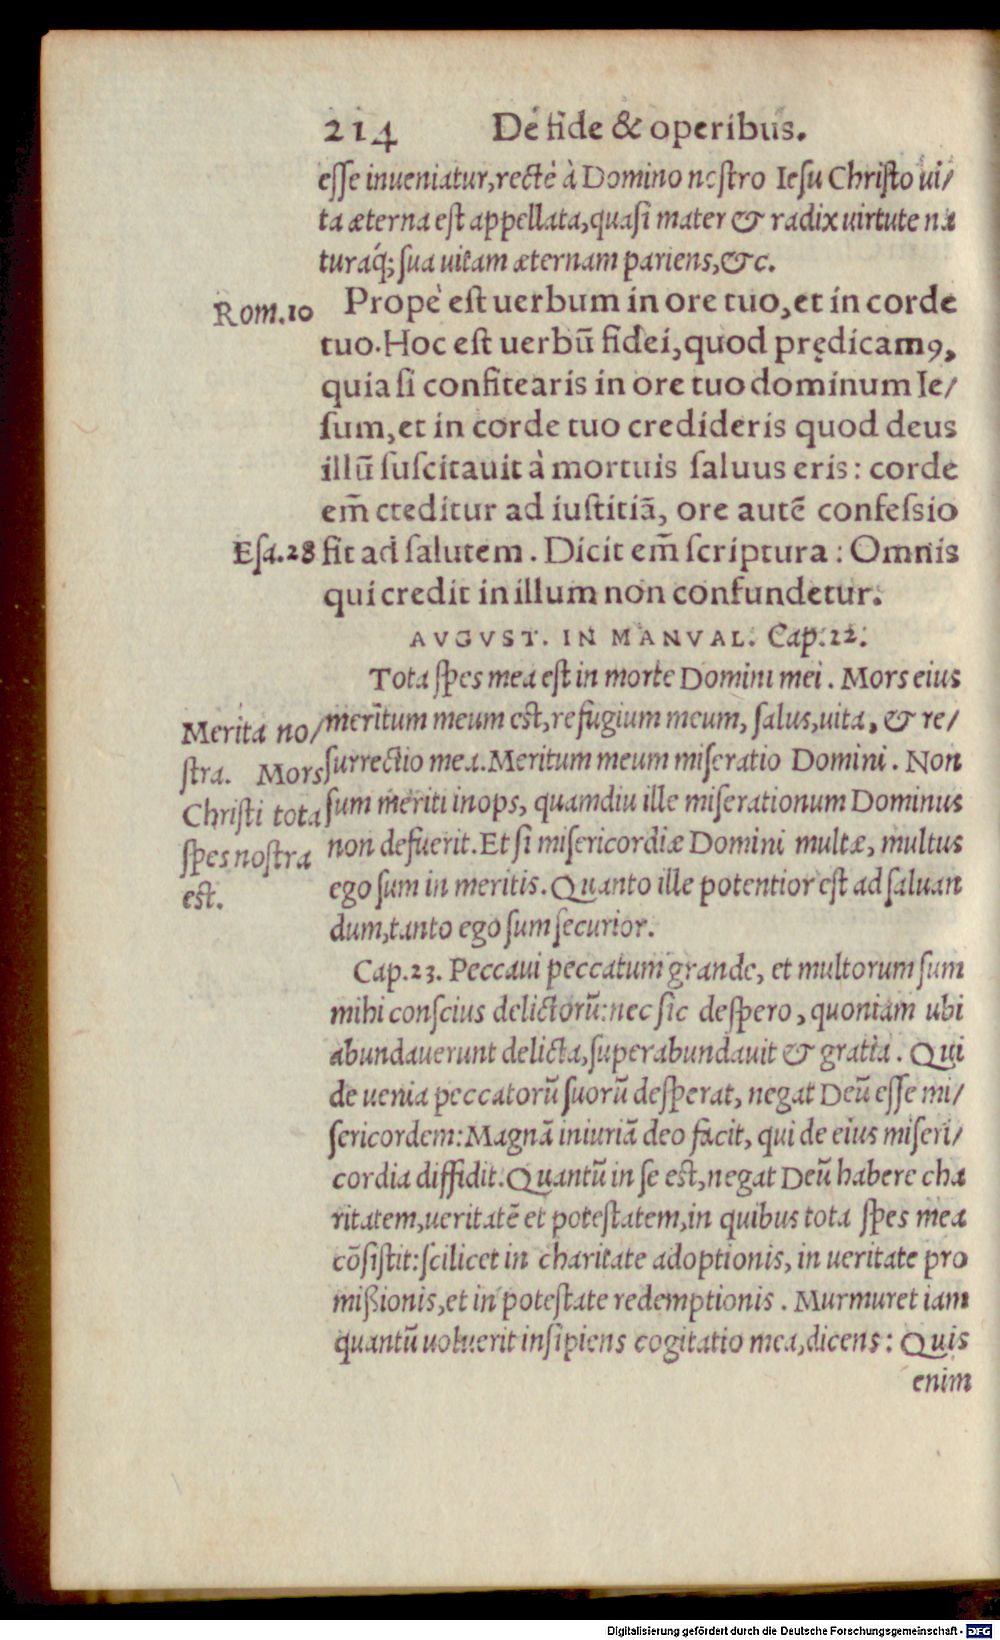 214 De fide & operibus.
esse inueniatur, rectè à Domino nostro Iesu Christo ui/
ta æterna est appellata, quasi mater & radix uirtute na
turaq́; sua uitam æternam pariens, &c.
Rom.10 Propè est uerbum in ore tuo, et in corde
tuo. Hoc est uerbũ fidei, quod prędicamꝯ,
quia si confitearis in ore tuo dominum Ie/
sum, et in corde tuo credideris quod deus
illũ suscitauit à mortuis saluus eris: corde
em̃ creditur ad iustitiã, ore autẽ confessio
Esa.28 fit ad salutem. Dicit em̃ scriptura: Omnis
qui credit in illum non confundetur.
AVGVST. IN MANVAL. Cap.22.
Tota spes mea est in morte Domini mei. Mors eius
Merita no/ meritum meum est, refugium meum, salus, uita, & re/
stra. Mors surrectio mea. Meritum meum miseratio Domini. Non
Christi tota sum meriti inops, quamdiu ille miserationum Dominus
spes nostra non defuerit. Et si misericordiæ Domini multæ, multus
est. ego sum in meritis. Quanto ille potentior est ad saluan
dum, tanto ego sum securior.
Cap.23. Peccaui peccatum grande, et multorum sum
mihi conscius delictorũ: nec sic despero, quoniam ubi
abundauerunt delicta, superabundauit & gratia. Qui
de uenia peccatorũ suorũ desperat, negat Deũ esse mi/
sericordem: Magnã iniuriã deo facit, qui de eius miseri/
cordia diffidit. Quantũ in se est, negat Deũ habere cha
ritatem, ueritatẽ et potestatem, in quibus tota spes mea
cõsistit: scilicet in charitate adoptionis, in ueritate pro
mißionis, et in potestate redemptionis. Murmuret iam
quantũ uoluerit insipiens cogitatio mea, dicens: Quis
enim
Digitalisierung gefördert durch die Deutsche Forschungsgemeinschaft - DFG